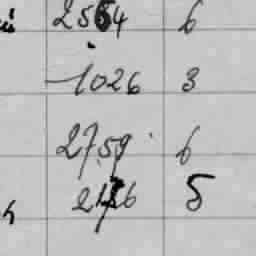 2564 6
1026 3
2759 6
2126 5